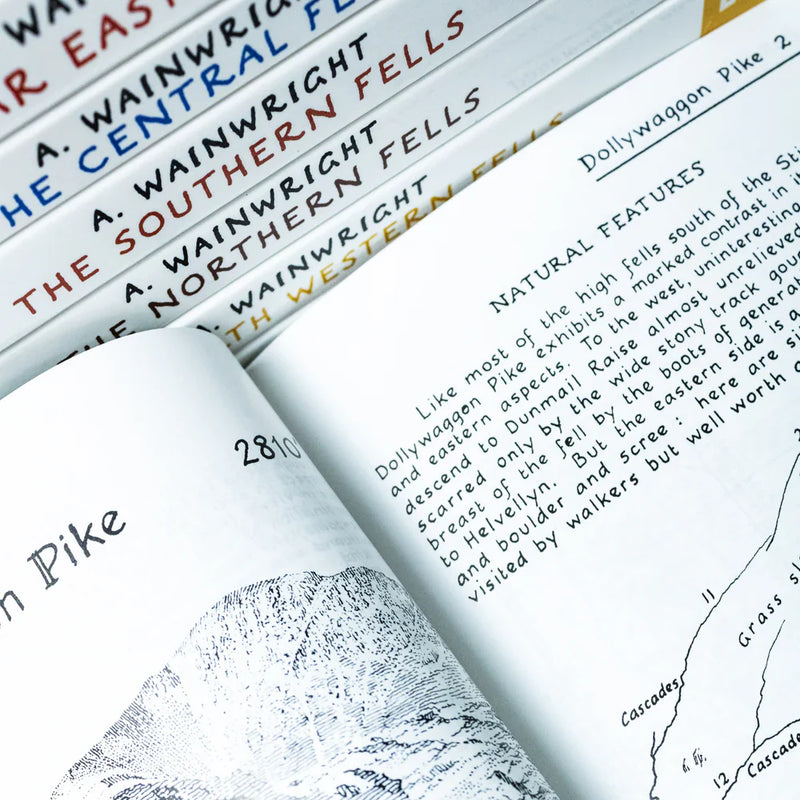 A. WAINWRIGHT
THE CENTRAL
A. WAINWRIGHT
THE SOUTHERN FELLS
A. WAINWRIGHT
THE NORTHERN FELLS
WAINWRIGHT
WESTERN FELLS
2810
Pike
Dollywaggon Pike 2
NATURAL FEATURES
Like most of the high fells south of the
Dollywaggon Pike exhibits a marked contrast in
and eastern aspects. To the west, uninteresting
descend to Dunmail Raise almost unrelieved
scarred only by the wide stony track
breast of the fell by the boots of
to Helvellyn. But the eastern side is a
and boulder and scree: here are
visited by walkers but well worth
11
Grass
Cascades
12
Cascades